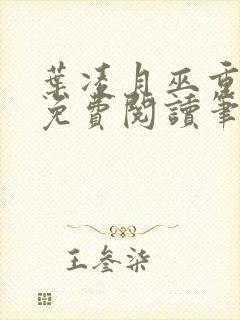 葉凌月巫重
免費閱讀筆
王叁柒